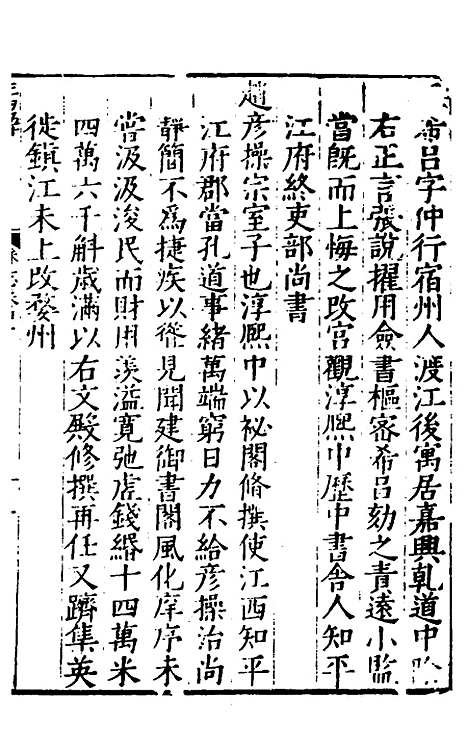 希呂字仲行宿州人渡江後寓居嘉興乹道中
右正言張說擢用僉書樞宻希呂劾之責遠小監
當旣而上悔之改宫觀淳熙中歷中書舍人知平
江府終吏部尚書
趙彦操宗室子也淳熙中以祕閣脩撰使江西知平
江府郡當孔道事緒萬端窮日力不給彦操治尚
靜簡不爲捷疾以徼見聞建御書閣風化庠序未
嘗汲汲浚民而財用羨溢寛弛虚錢緡十四萬米
四萬六千斛歳滿以右文殿修撰再任又躋集英
徙鎮江未上改婺州